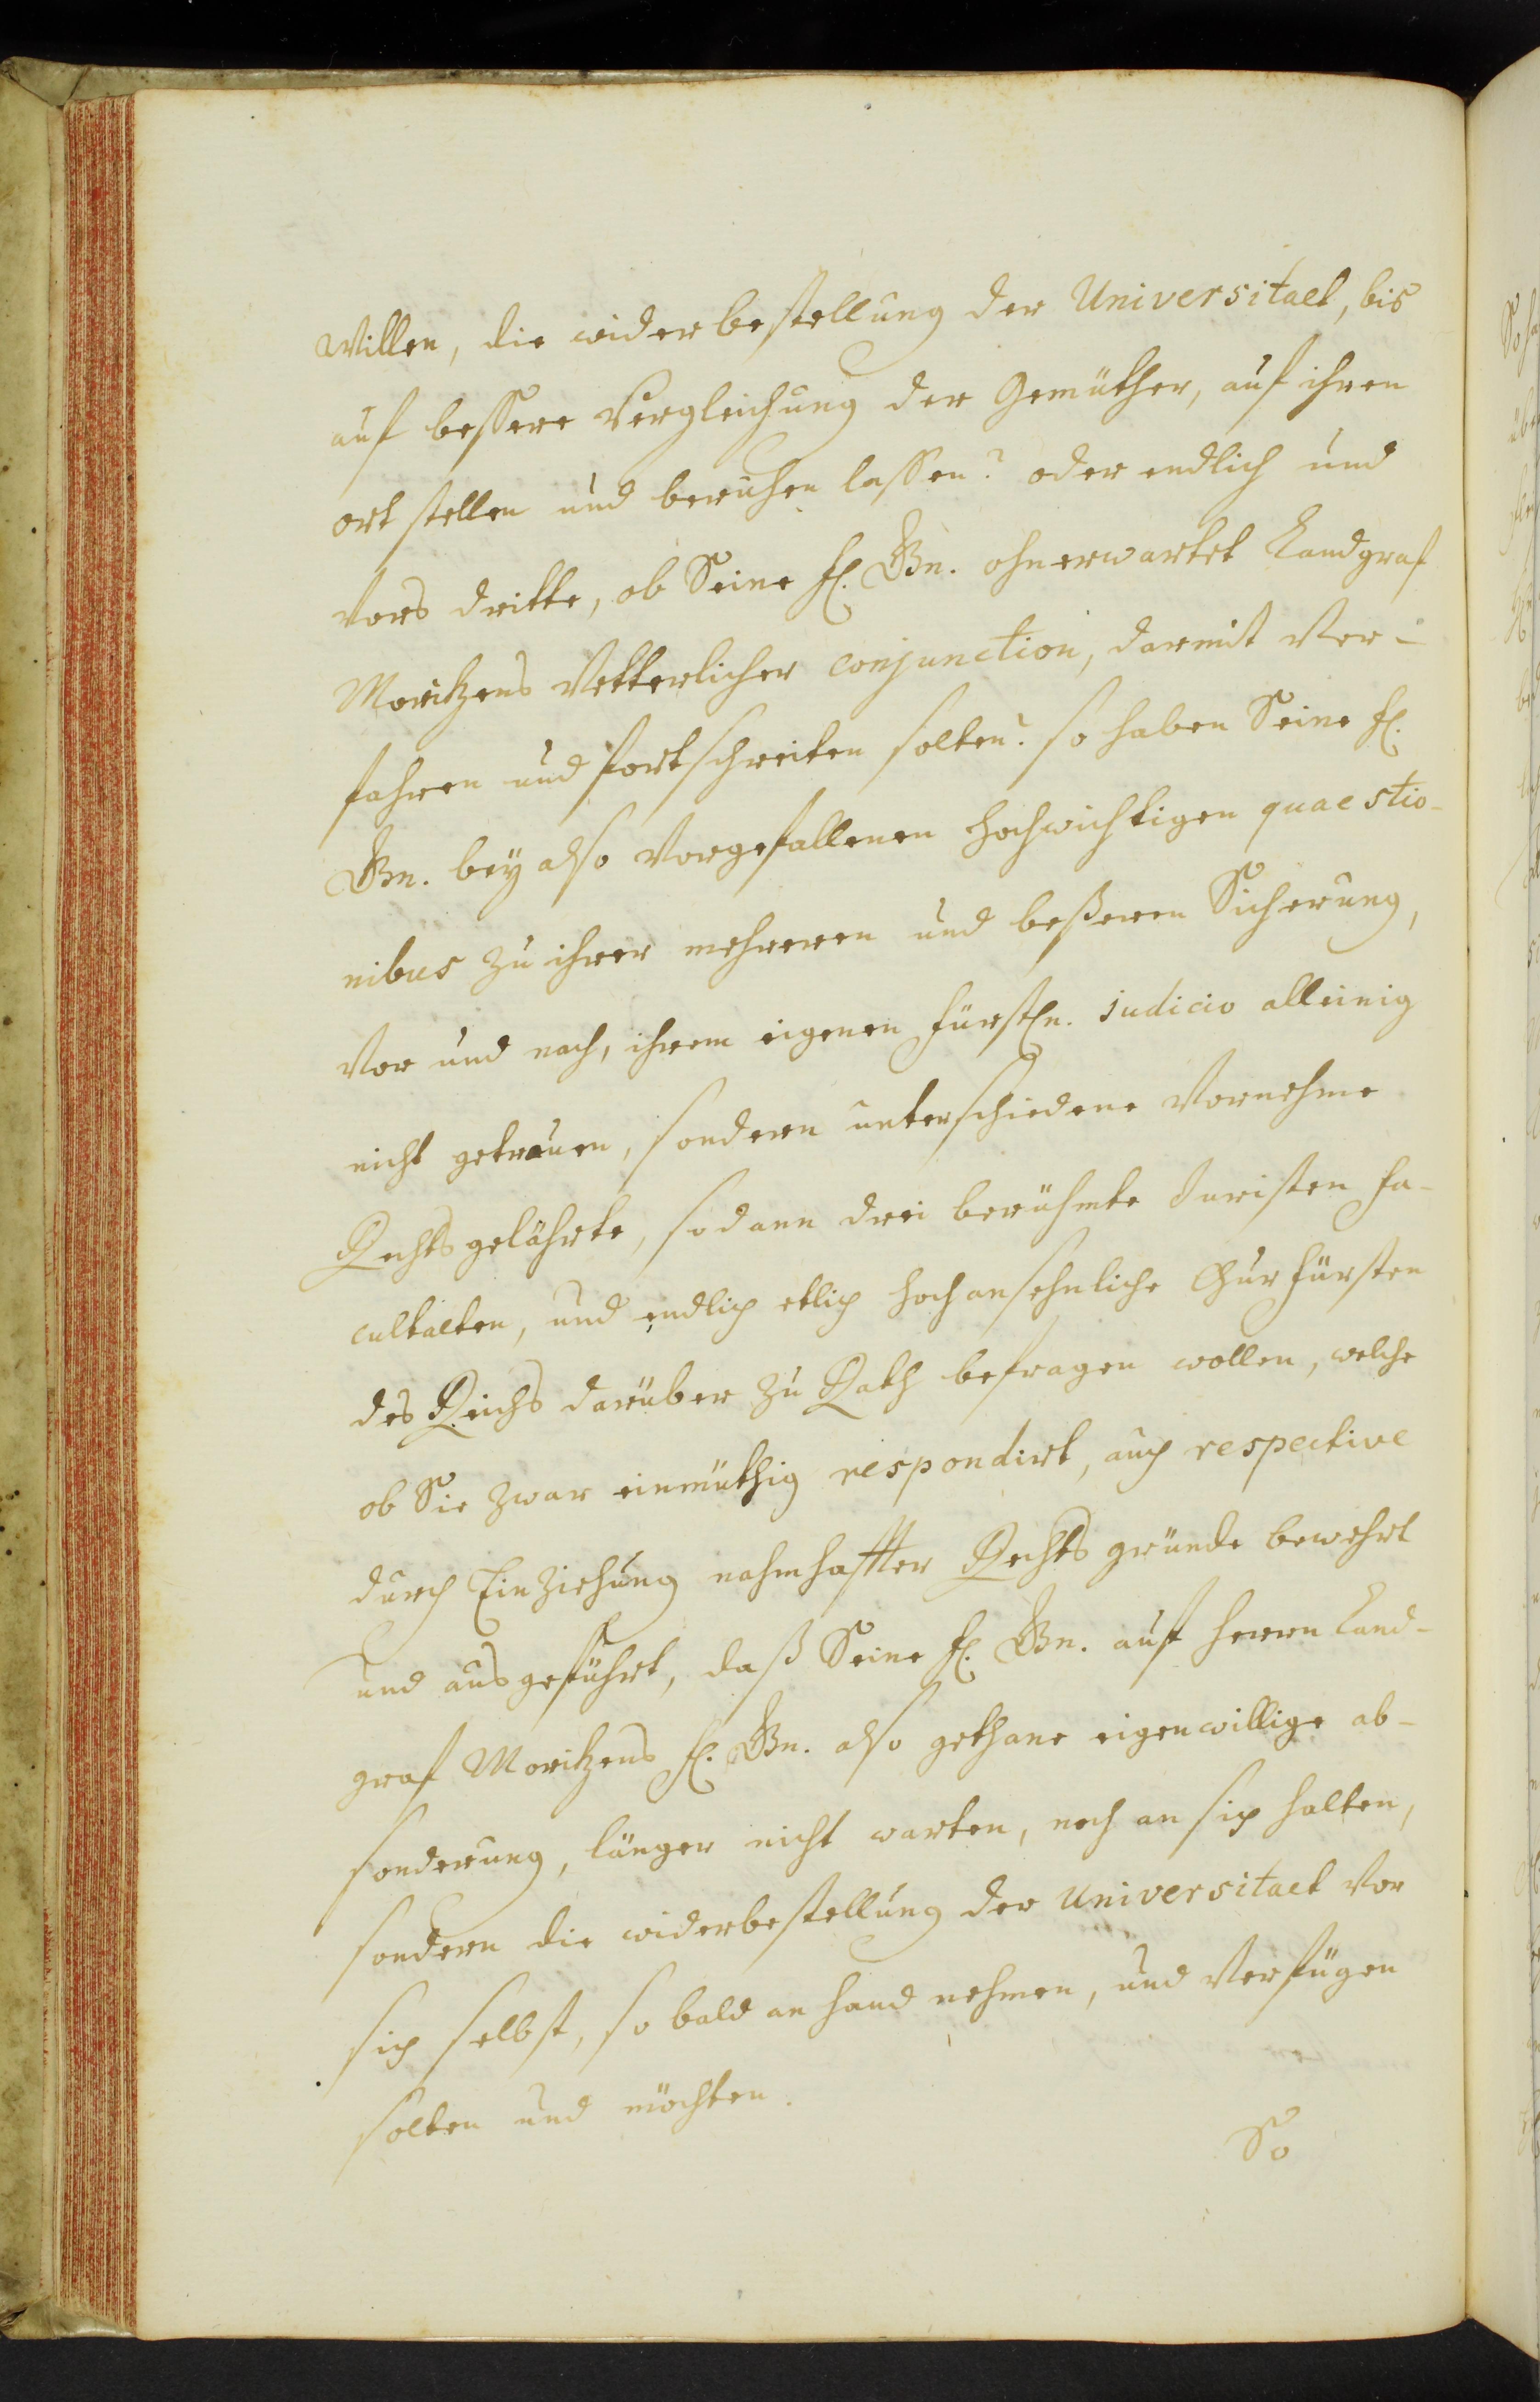 Willen, die widerbestellung der Universitaet, bis
auf bessere Vergleichung der Gemüther, auf ihren
ort stellen und beruhen lassen? oder endlich und
vors dritte, ob Seine fl. Gn. ohnerwartet Landgraf
Moritzens Vetterlicher conjunction, darmit ver-
fahren und fortschreiten solten? so haben Seine fl.
Gn. bey also vorgefallenen hochwichtigen quaestio-
nibus zu ihrer mehreren und beßeren Sicherung,
vor und nach, ihrem eigenen fürstln. judicio alleinig
nicht getrauen, sondern unterschiedene vornehme
Rechtsgelährte, sodann drei berühmte Juristen fa-
cultaeten, und endlich etlich hochansehnliche Churfürsten
des Reichs darüber zu Rath befragen wollen, welche
ob Sie zwar einmüthig respondirt, auch respective
durch Einziehung nahmhaffter Rechts gründe bewehrt
und ausgeführt, daß Seine fl. Gn. auf herrn Land-
graf Moritzens fl. Gn. also gethane eigenwillige ab-
sonderung, länger nicht warten, noch an sich halten,
sondern die widerbestellung der Universitaet vor
sich selbst, so bald an hand nehmen, und verfügen
solten und möchten.
So